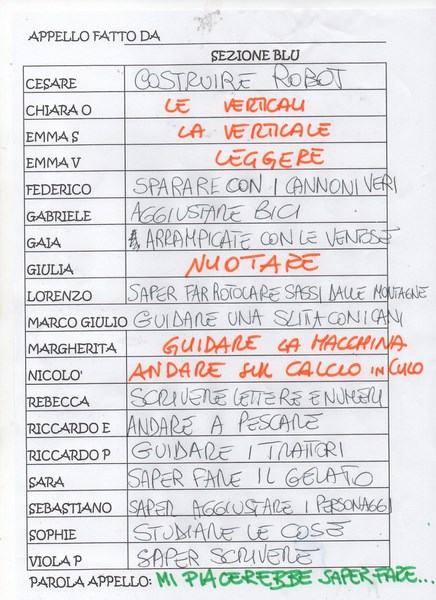 APPELLO FATTO DA
SEZIONE BLU
CESARE COSTRUIRE ROBOT
CHIARA O LE VERTICALI
EMMA S LA VERTICALE
EMMA V LEGGERE
FEDERICO SPARARE CON I CANNONI VERI
GABRIELE AGGIUSTARE BICI
GAIA ARRAMPICATE CON LE VENTOSE
GIULIA NUOTARE
LORENZO SAPER FAR ROTOLARE SASSI DALLE MONTAGNE
MARCO GIULIO GUIDARE UNA SLITTA CON I CANI
MARGHERITA GUIDARE LA MACCHINA
NICOLO' ANDARE SUL CALCIO IN CULO
REBECCA SCRIVERE LETTERE E NUMERI
RICCARDO E ANDARE A PESCARE
RICCARDO P GUIDARE I TRATTORI
SARA SAPER FARE IL GELATO
SEBASTIANO SAPER AGGIUSTARE I PERSONAGGI
SOPHIE STUDIARE LE COSE
VIOLA P SAPER SCRIVERE
PAROLA APPELLO: MI PIACEREBBE SAPER FARE...